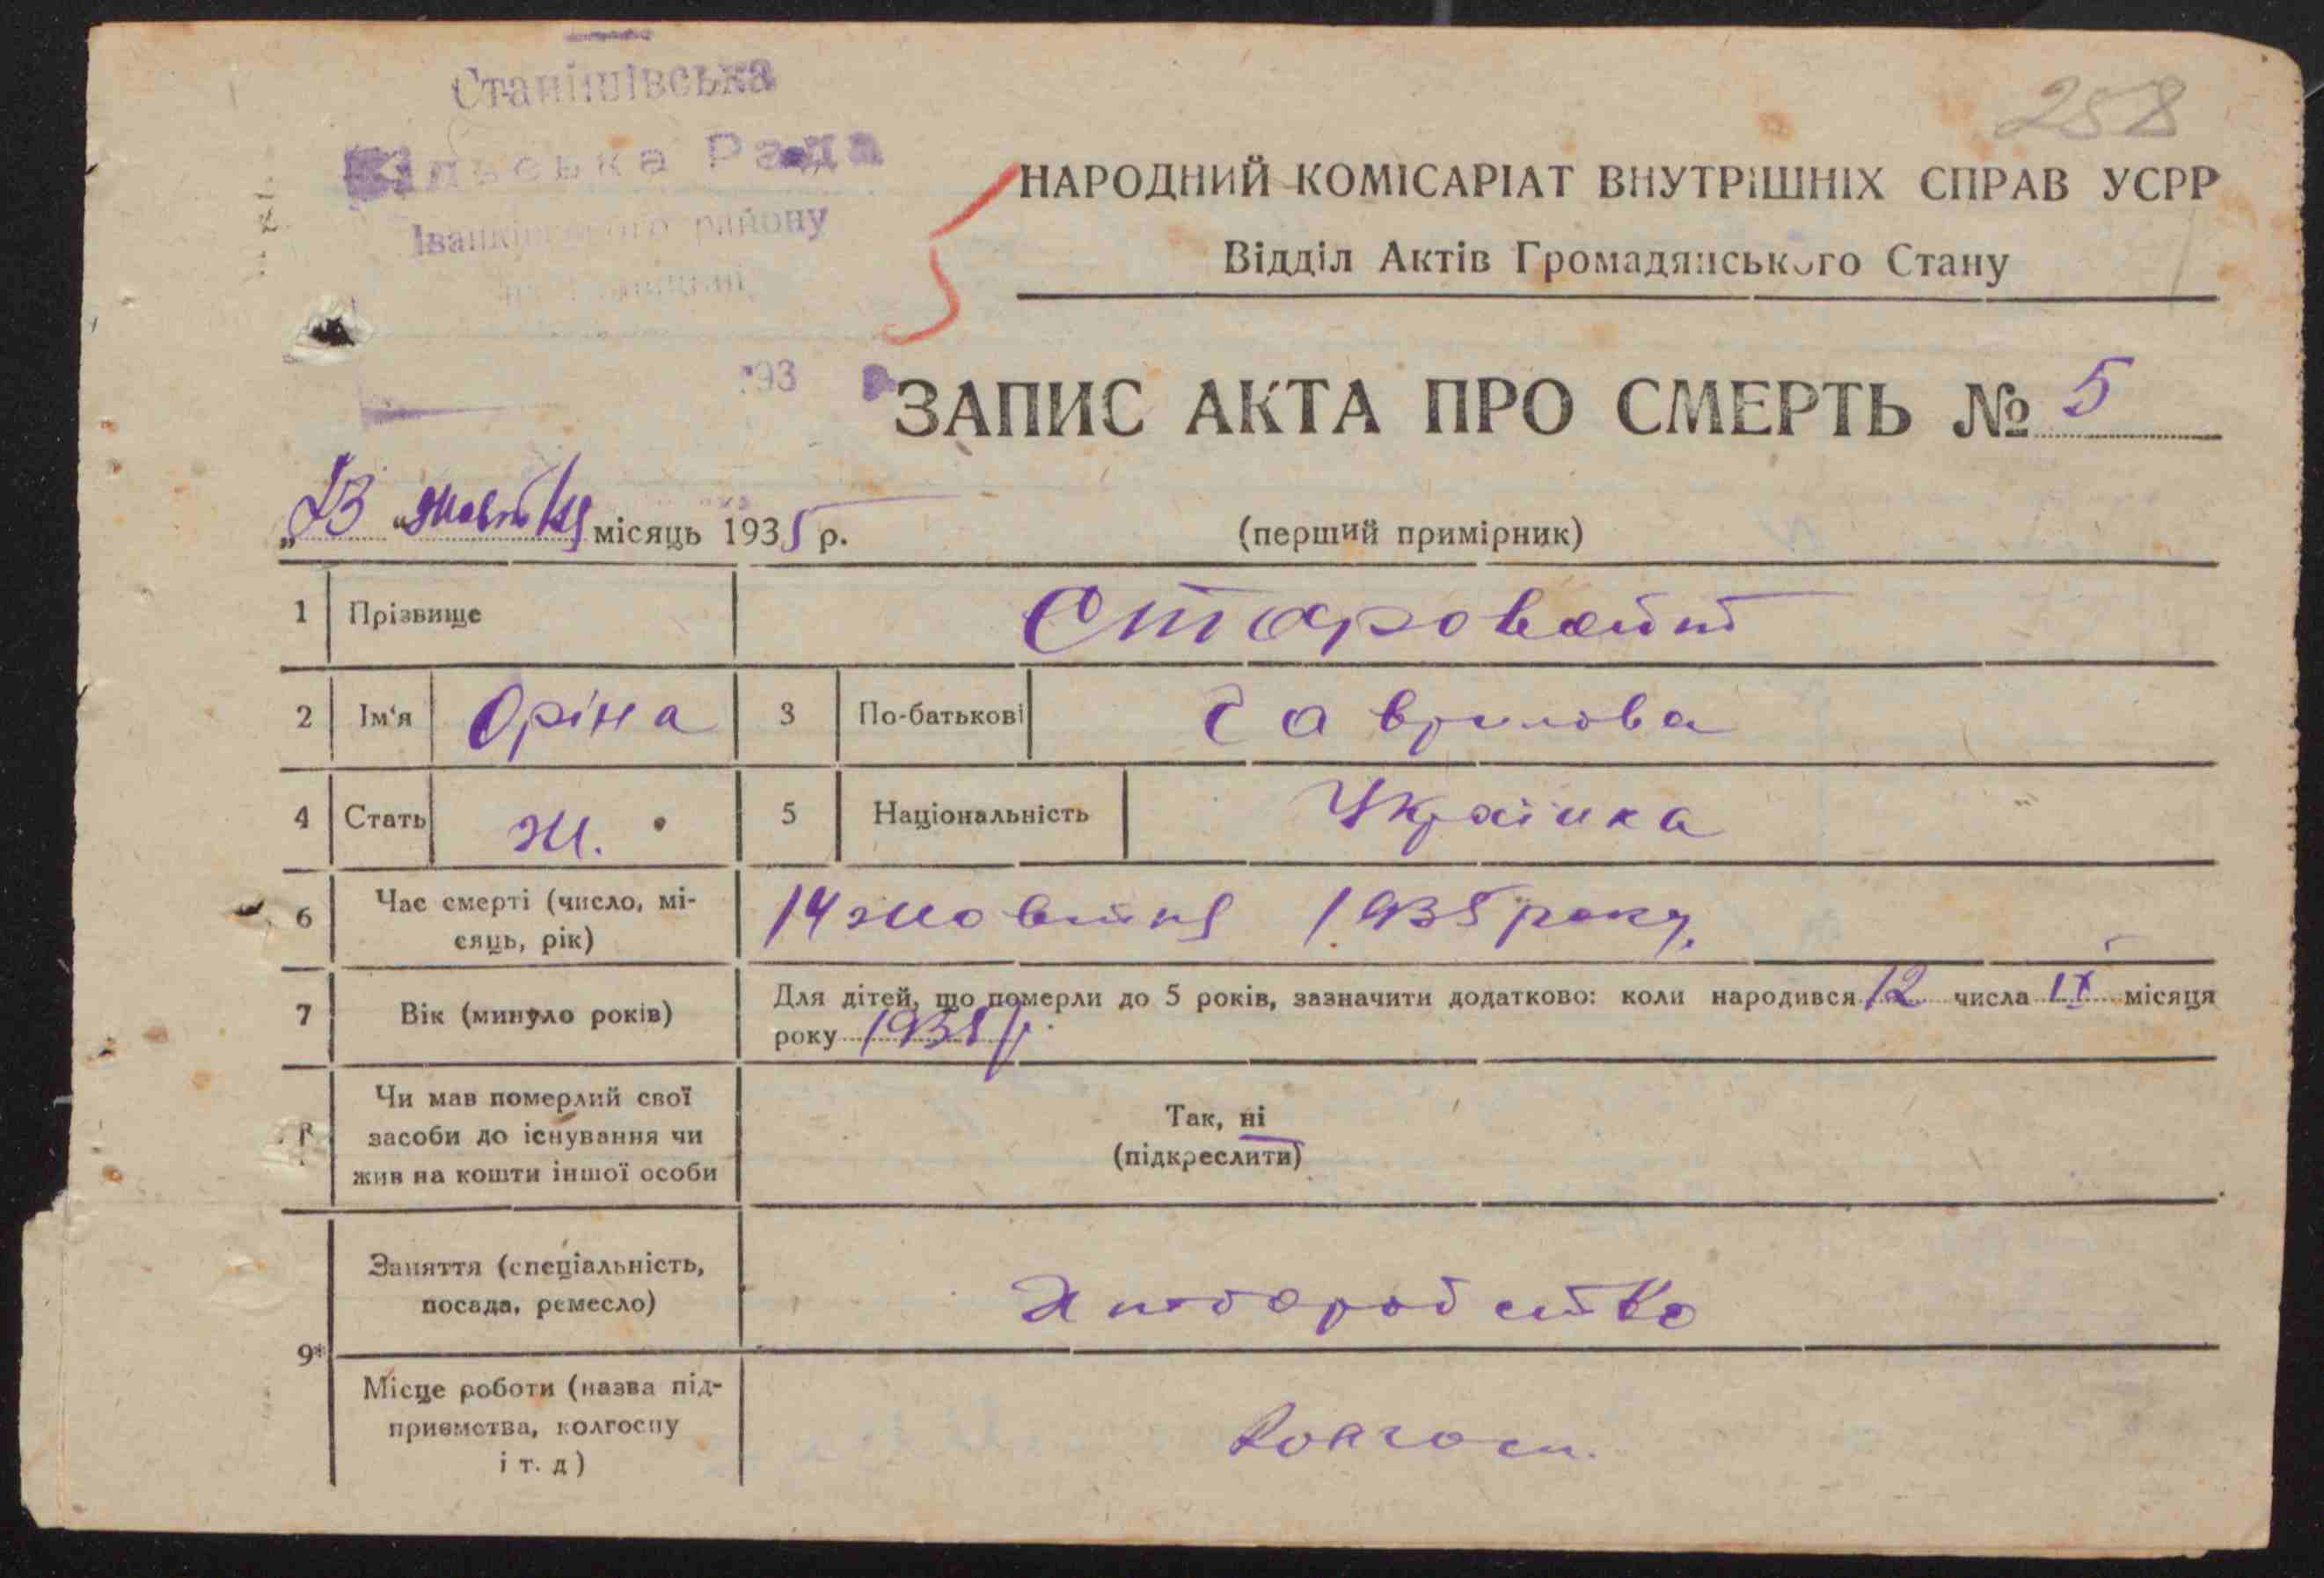 258
Станішівська
Сільська Рада
Іванківського району
193 р.
НАРОДНИЙ КОМІСАРІАТ ВНУТРІШНІХ СПРАВ УСРР
Відділ Актів Громадянського Стану
ЗАПИС АКТА ПРО СМЕРТЬ № 5
„23 “ жовтня місяць 1935 р.
(перший примірник)
1 Прізвище Старовойт
2 Ім'я Оріна 3 По-батькові Гаврилова
4 Стать Ж. 5 Національність Українка
6 Час смерті (число, мі-
сяць, рік) 14 жовтня 1935 року.
7 Вік (минуло років) Для дітей, що померли до 5 років, зазначити додатково: коли народився 12 числа IX місяця
року 1935 р.
Чи мав померлий свої
засоби до існування чи
жив на кошти іншої особи
Так, ні
(підкреслити)
9* Заняття (спеціальність,
посада, ремесло)
Місце роботи (назва під-
приємства, колгоспу
і т. д)
Колгосп.